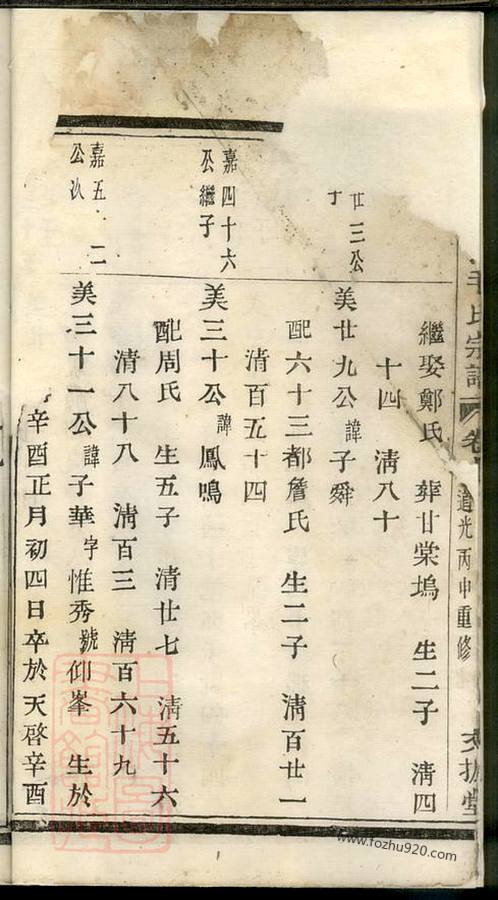 毛氏宗譜 卷 道光丙申重修
繼娶鄭氏 葬廿棠塢 生二子 清四
十四 清八十
廿三公
子
美廿九公諱子舜
配六十三都詹氏 生二子 清百廿一
清百五十四
嘉四十六
公繼子
美三十公諱鳳鳴
配周氏 生五子 清廿七 清五十六
清八十八 清百三 清百六十九
嘉五 二
公次
美三十一公諱子華字惟秀號仰峯 生於
辛酉正月初四日卒於天啓辛酉
www.fozhu920.com